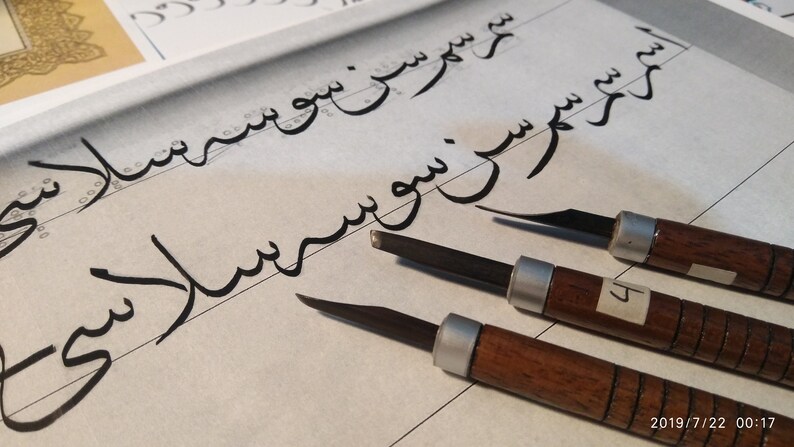 سم سم سم سن سو سه سلا سى
سم سم سم سن سو سه سلا سى
2019/7/22 00:17